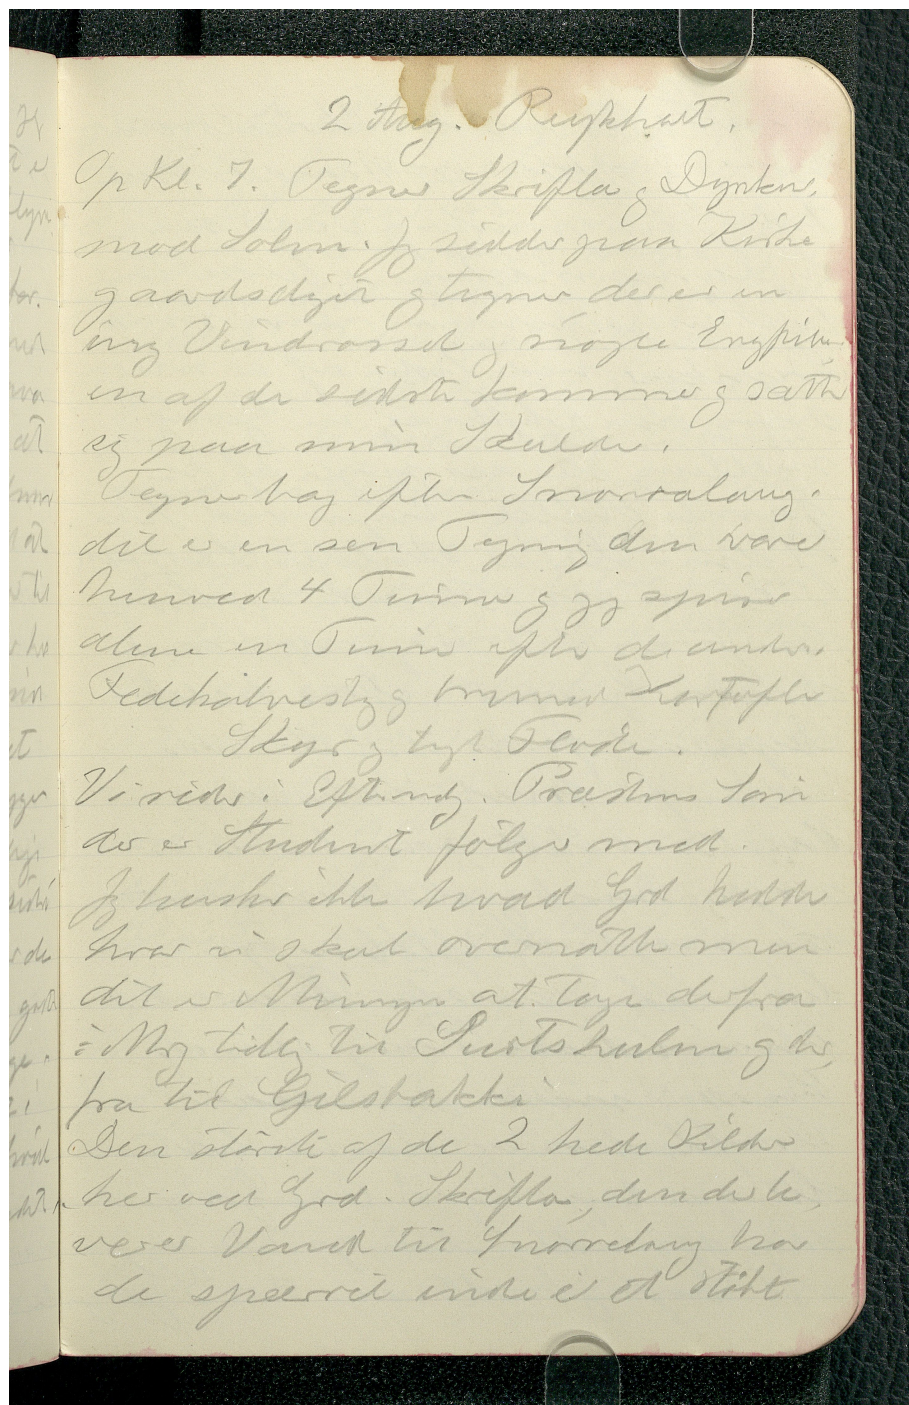 2 Aug. Reykholt.
Op Kl. 7. Tegner Skrifla g Dynken,
mod Solen. Jg sidder paa Kirke
gaardsdiget g tegner der er en
ivrig Vindrossel g nogle Engpiber
en af de sidste kommer g sætter
sig paa min Skulder.
Tegner bag efter Snorralaug.
det er en sen Tegning den varer
henved 4 Timer g jg spiser
alene en Time efter de andre.
Fedekalvesteg g brunede Kartofler
Skyr g tyk Fløde.
Vi rider i Eftermdg. Præstens Søn
der er Student følger med.
Jg husker ikke hvad Grd hedder
hvor vi skal overnatte men
det er Meningen at tage derfra
i Mrg tidlig til Surtshulen g der,
fra til Gilsbakki
Den største af de 2 hede Kilder
her ved Grd. Skrifla, den der le,
verer Vand til Snorrelaug har
de spærret inde i et støbt